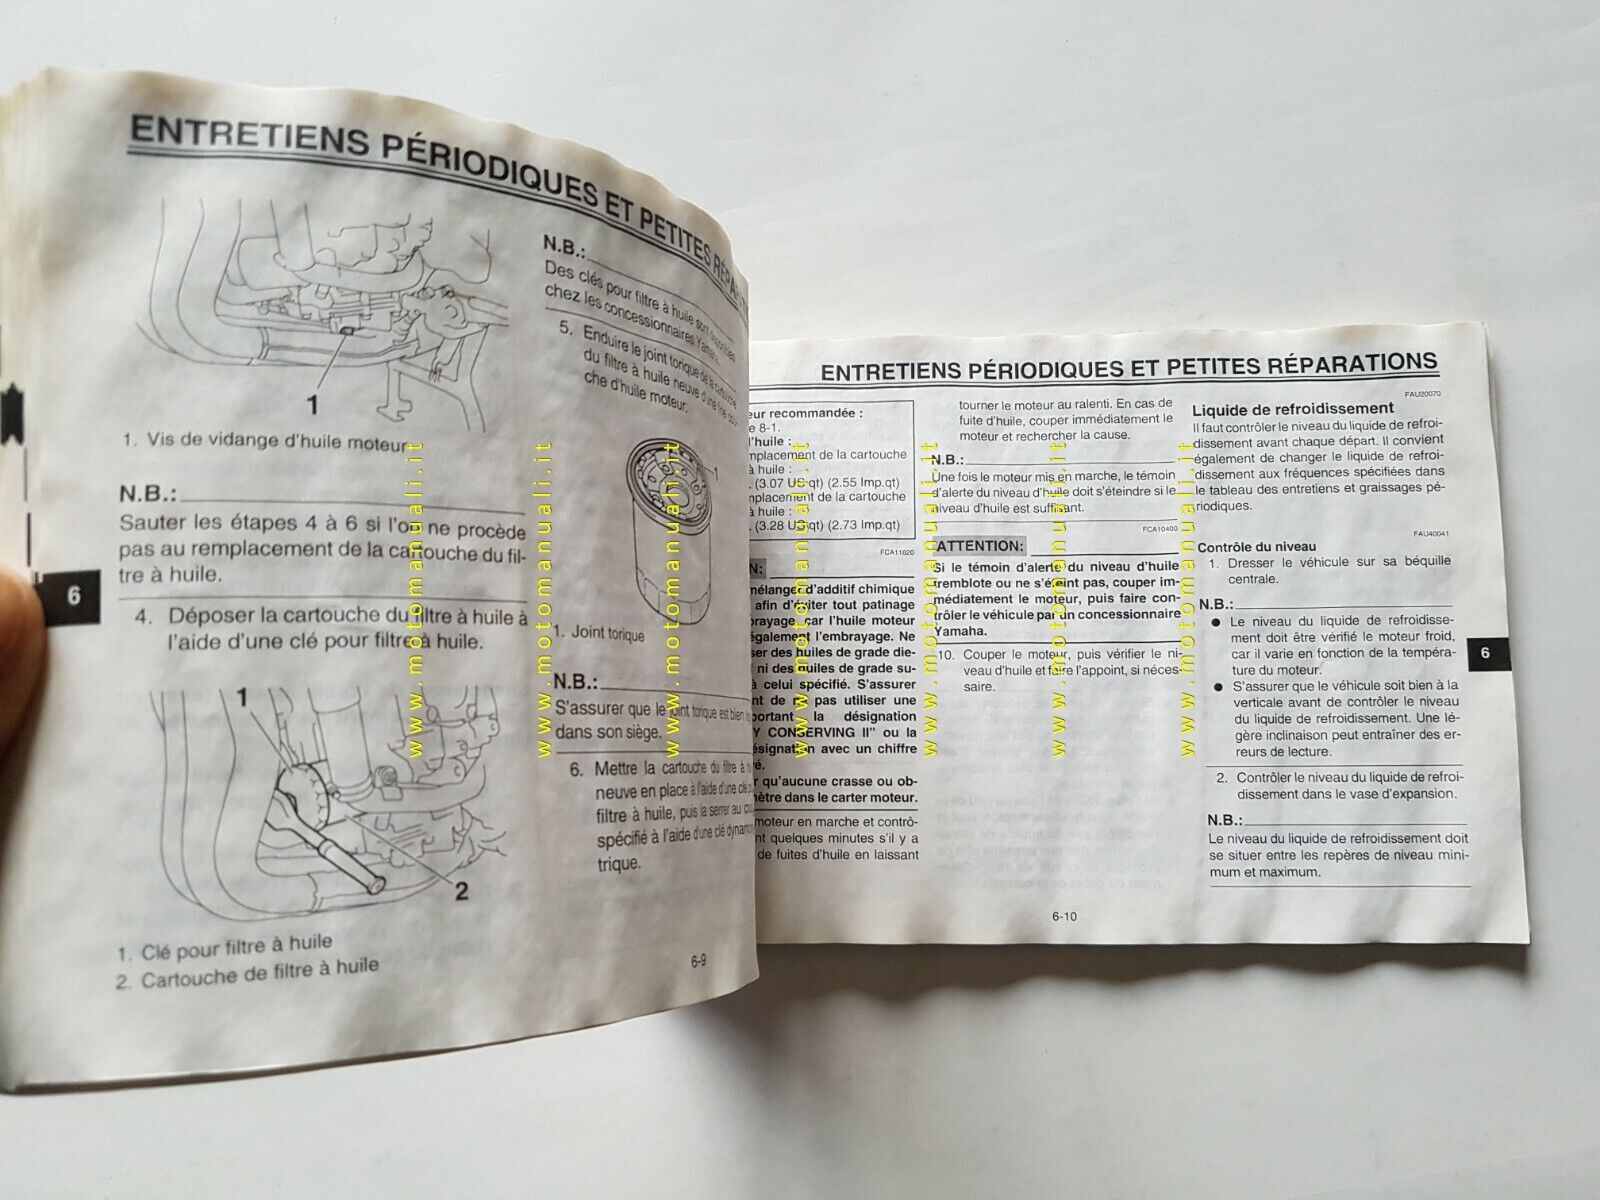 ENTRETIENS PÉRIODIQUES ET PETITES RÉPARATI
1
1. Vis de vidange d'huile moteur
N.B.:
Sauter les étapes 4 à 6 si l'on ne procède
pas au remplacement de la cartouche du fil-
tre à huile.
6
4. Déposer la cartouche du filtre à huile à
l'aide d'une clé pour filtre à huile.
1
2
1. Clé pour filtre à huile
2. Cartouche de filtre à huile
N.B.:
Des clés pour filtre à huile sont disponibles
chez les concessionnaires Yamaha.
5. Enduire le joint torique de la cartouche
du filtre à huile neuve d'une fine
che d'huile moteur.
1
1. Joint torique
N.B.:
S'assurer que le joint torique est bien
dans son siège.
6. Mettre la cartouche du filtre à
neuve en place à l'aide d'une clé
filtre à huile, puis la serrer au
spécifié à l'aide d'une clé
trique.
6-9
ENTRETIENS PÉRIODIQUES ET PETITES RÉPARATIONS
eur recommandée :
e 8-1.
l'huile :
mplacement de la cartouche
à huile :
. (3.07 US qt) (2.55 Imp.qt)
mplacement de la cartouche
à huile :
. (3.28 US qt) (2.73 Imp.qt)
FCA11620
N:
mélanger d'additif chimique
afin d'éviter tout patinage
brayage car l'huile moteur
également l'embrayage. Ne
ser des huiles de grade die-
ni des huiles de grade su-
à celui spécifié. S'assurer
nt de ne pas utiliser une
portant la désignation
Y CONSERVING II" ou la
ésignation avec un chiffre
é.
r qu'aucune crasse ou ob-
nètre dans le carter moteur.
moteur en marche et contrô-
nt quelques minutes s'il y a
de fuites d'huile en laissant
tourner le moteur au ralenti. En cas de
fuite d'huile, couper immédiatement le
moteur et rechercher la cause.
N.B.:
Une fois le moteur mis en marche, le témoin
d'alerte du niveau d'huile doit s'éteindre si le
niveau d'huile est suffisant.
FCA10400
ATTENTION:
Si le témoin d'alerte du niveau d'huile
tremblote ou ne s'éteint pas, couper im-
médiatement le moteur, puis faire con-
trôler le véhicule par un concessionnaire
Yamaha.
10. Couper le moteur, puis vérifier le ni-
veau d'huile et faire l'appoint, si néces-
saire.
6-10
FAU20070
Liquide de refroidissement
Il faut contrôler le niveau du liquide de refroi-
dissement avant chaque départ. Il convient
également de changer le liquide de refroi-
dissement aux fréquences spécifiées dans
le tableau des entretiens et graissages pé-
riodiques.
FAU40041
Contrôle du niveau
1. Dresser le véhicule sur sa béquille
centrale.
N.B.:
● Le niveau du liquide de refroidisse-
ment doit être vérifié le moteur froid,
car il varie en fonction de la tempéra-
ture du moteur.
● S'assurer que le véhicule soit bien à la
verticale avant de contrôler le niveau
du liquide de refroidissement. Une lé-
gère inclinaison peut entraîner des er-
reurs de lecture.
2. Contrôler le niveau du liquide de refroi-
dissement dans le vase d'expansion.
N.B.:
Le niveau du liquide de refroidissement doit
se situer entre les repères de niveau mini-
mum et maximum.
6
www.motomanuali.it
www.motomanuali.it
www.motomanuali.it
www.motomanuali.it
www.motomanuali.it
www.motomanuali.it
www.motomanuali.it